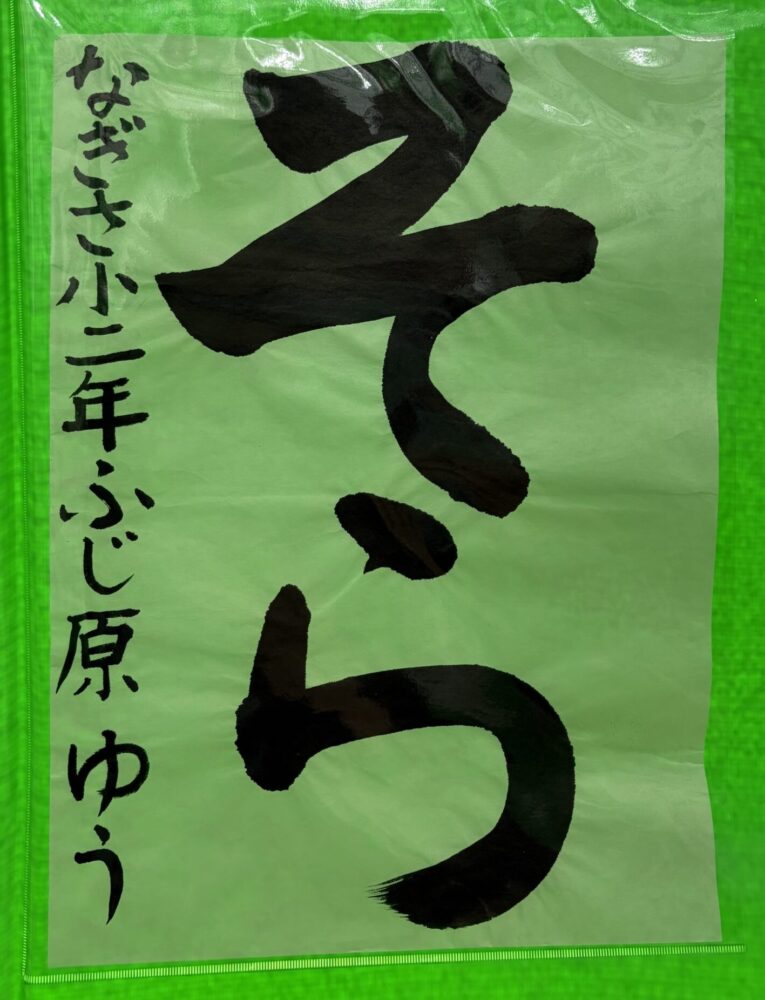 そら
なぎさ小二年ふじ原ゆう